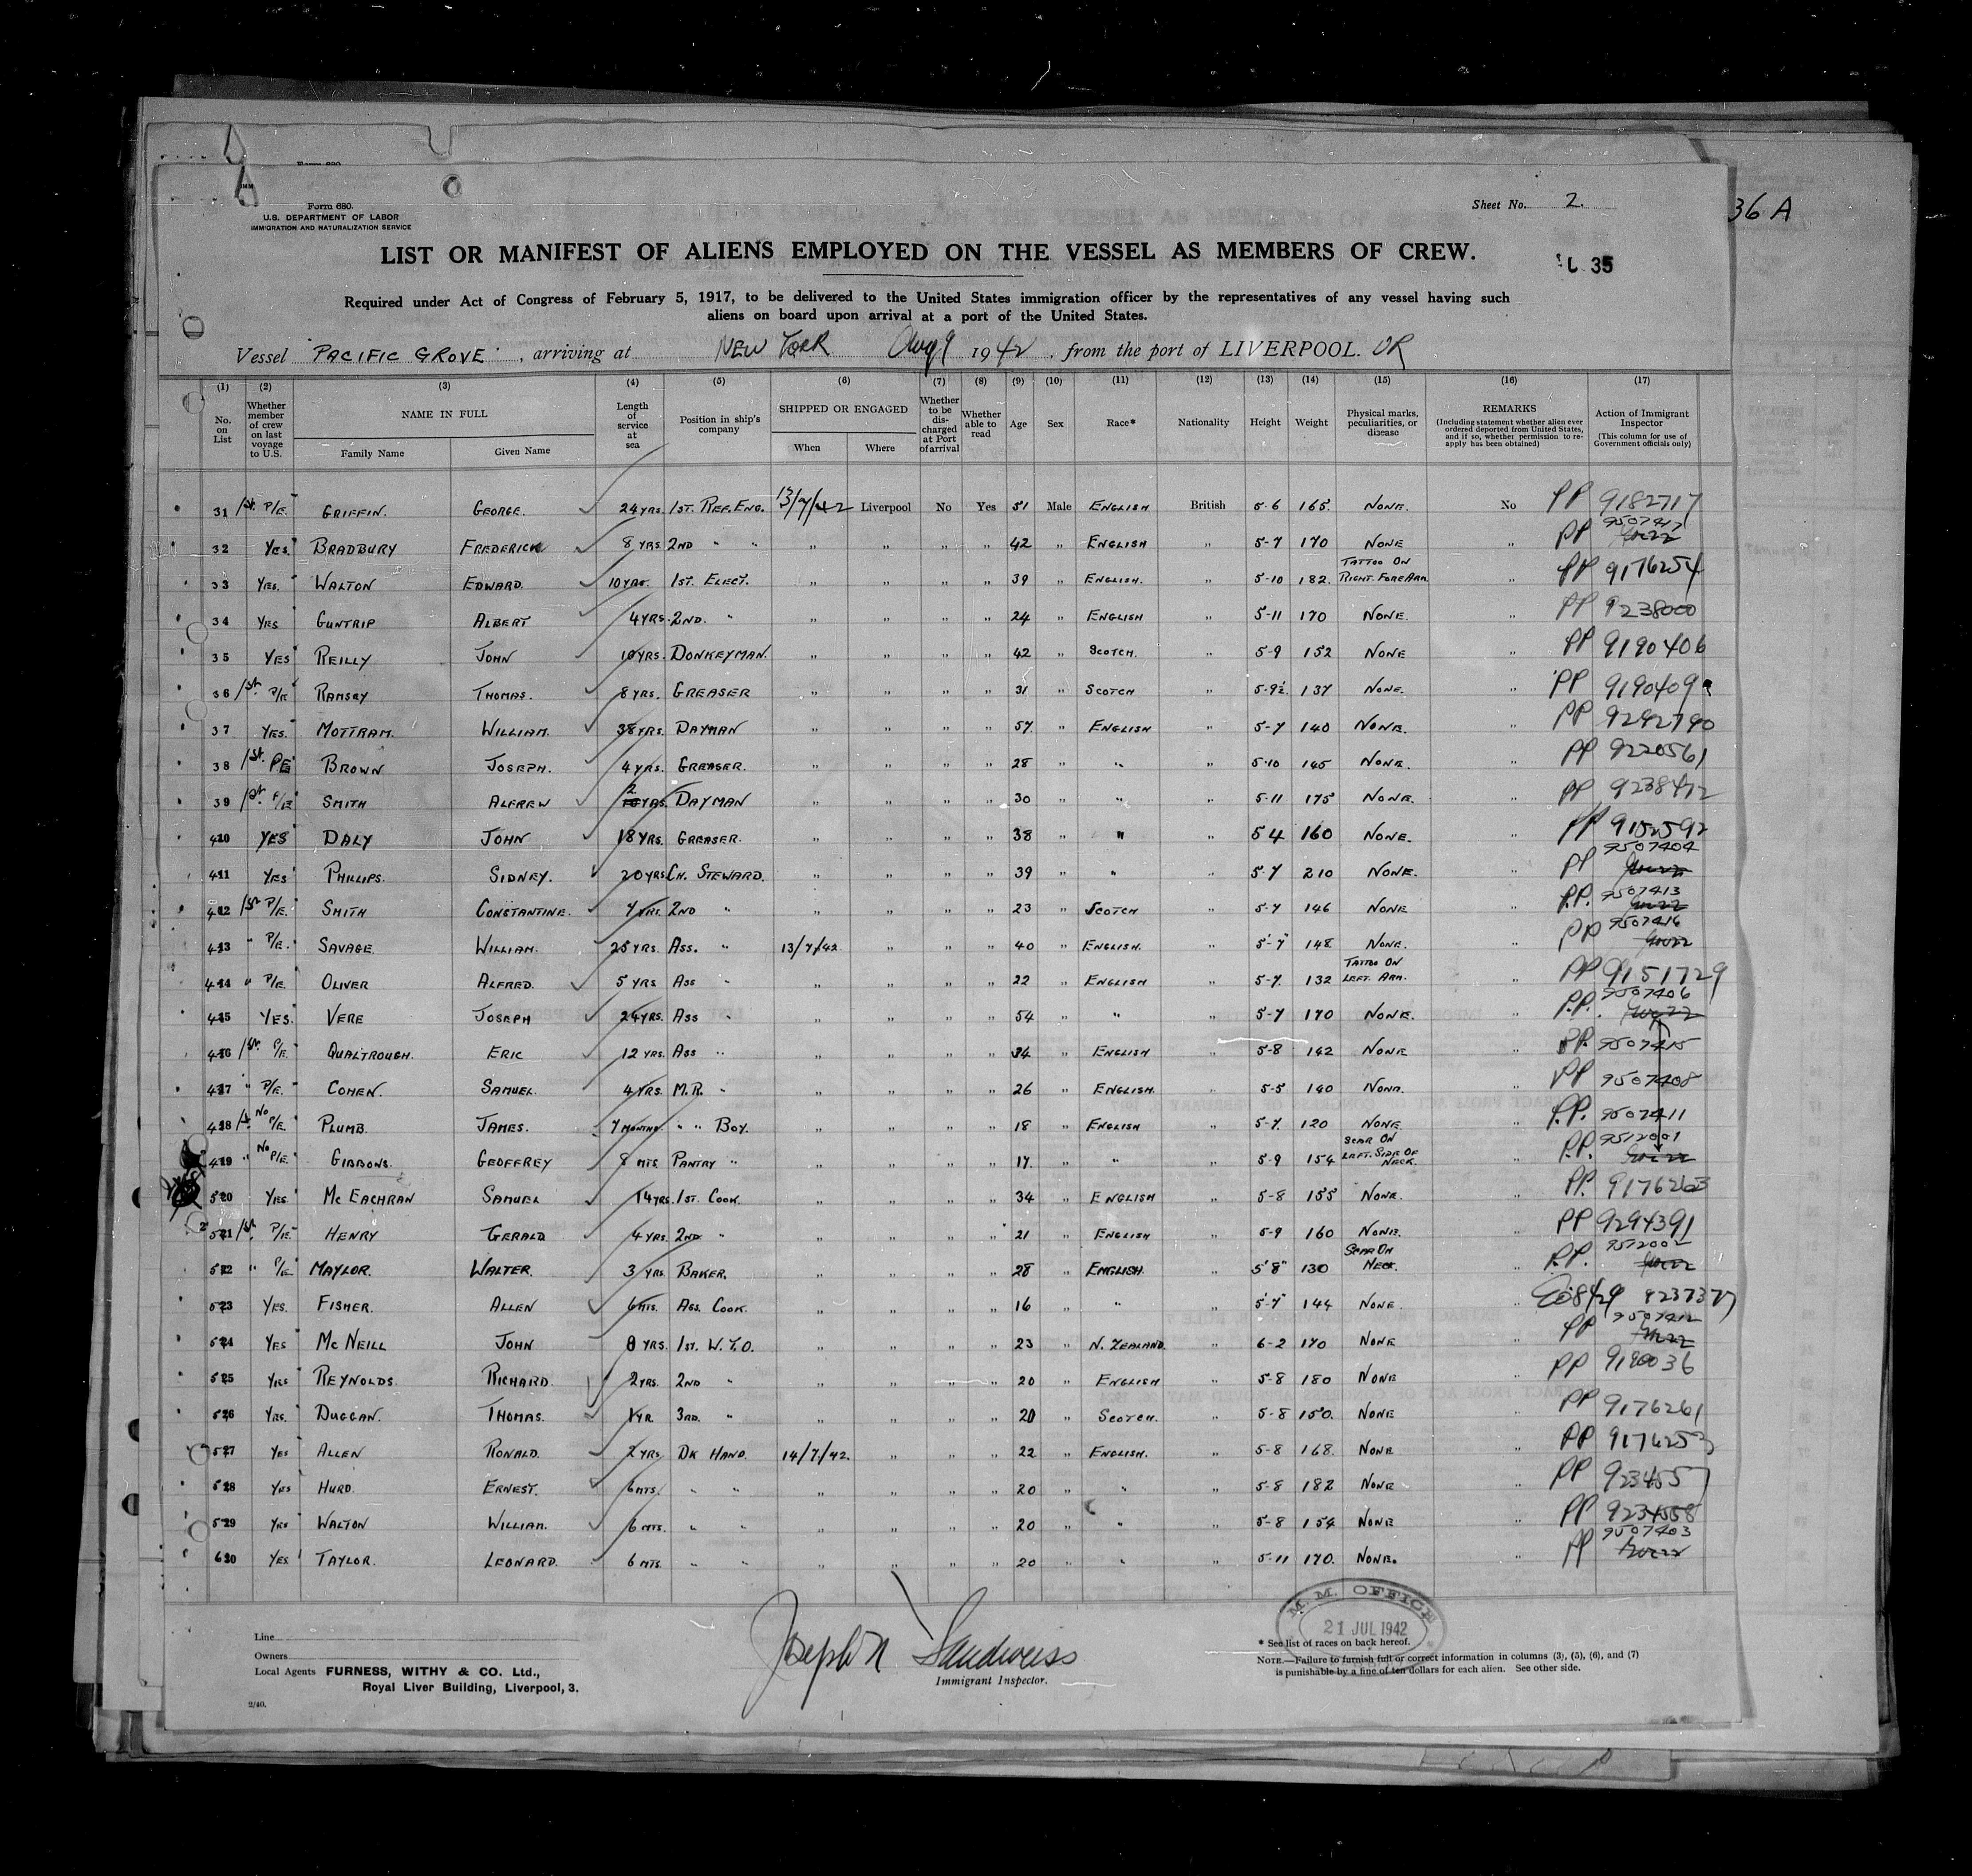 Sheet No. 2.
36 A
Form 680.
U.S. DEPARTMENT OF LABOR
IMMIGRATION AND NATURALIZATION SERVICE
LIST OR MANIFEST OF ALIENS EMPLOYED ON THE VESSEL AS MEMBERS OF CREW.
L 35
Required under Act of Congress of February 5, 1917, to be delivered to the United States immigration officer by the representatives of any vessel having such
aliens on board upon arrival at a port of the United States.
Vessel "PACIFIC GROVE", arriving at NEW YORK Aug 9 1942, from the port of LIVERPOOL. UK
(1) (2) (3) (4) (5) (6) (7) (8) (9) (10) (11) (12) (13) (14) (15) (16) (17)
No. on List | Whether member of crew on last voyage to U.S. | NAME IN FULL | Family Name | Given Name | Length of service at sea | Position in ship's company | SHIPPED OR ENGAGED | When | Where | Whether to be discharged at Port of arrival | Whether able to read | Age | Sex | Race* | Nationality | Height | Weight | Physical marks, peculiarities, or disease | REMARKS (Including statement whether alien ever ordered deported from United States, and if so, whether permission to re-apply has been obtained) | Action of Immigrant Inspector (This column for use of Government officials only)
31 1st P/E. GRIFFIN. GEORGE. 24 YRS. 1ST. REF. ENG. 13/7/42 Liverpool No Yes 51 Male ENGLISH British 5-6 165. NONE. No PP 9182717
32 YES. BRADBURY FREDERICK 8 YRS 2ND " " " " " " 42 " ENGLISH " 5-7 170 NONE " PP 9507417
33 YES. WALTON EDWARD. 10 YRS. 1ST. ELECT. " " " " 39 " ENGLISH. " 5-10 182. TATTOO ON RIGHT. FOREARM. " PP 9176254
34 YES GUNTRIP ALBERT 4 YRS. 2ND. " " " " " 24 " ENGLISH " 5-11 170 NONE. " PP 9238000
35 YES REILLY JOHN 10 YRS. DONKEYMAN. " " " " 42 " SCOTCH. " 5-9 152 NONE " PP 9190406
36 1st. P/E RAMSEY THOMAS. 8 YRS. GREASER " " " " 31 " SCOTCH " 5-9½ 137 NONE. " PP 9190409
37 YES. MOTTRAM. WILLIAM. 38 YRS. DAYMAN " " " " 57. " ENGLISH " 5-7 140 NONE. " PP 9292790
38 1st. PE BROWN JOSEPH. 4 YRS. GREASER. " " " " 28 " " " 5-10 145 NONE. " PP 9220561
39 1st. P/E SMITH ALFREW 2 YRS. DAYMAN " " " " 30 " " " 5-11 175 NONE. " PP 9238472
40 YES DALY JOHN 18 YRS. GREASER. " " " " 38 " " " 5 4 160 NONE. " PP 9152592
41 YES PHILLIPS. SIDNEY. 20 YRS CH. STEWARD. " " " " 39 " " " 5-7 210 NONE. " PP 9507404
42 1st P/E. SMITH CONSTANTINE. 7 YRS. 2ND " " " " " 23 " SCOTCH " 5-7 146 NONE " P.P. 9507413
43 " P/E. SAVAGE. WILLIAM. 25 YRS. ASS. " 13/7/42. " " " 40 " ENGLISH. " 5'-7" 148 NONE. " PP 9507416
44 " P/E. OLIVER ALFRED. 5 YRS ASS " " " " " 22 " ENGLISH " 5-7. 132 TATTOO ON LEFT. ARM. " PP 9151729
45 YES. VERE JOSEPH 24 YRS. ASS " " " " " 54 " " " 5-7 170 NONE. " P.P. 9507406
46 1st. P/E. QUALTROUGH. ERIC 12 YRS. ASS " " " " " 34 " ENGLISH " 5-8 142 NONE " PP. 9507415
47 " P/E. COHEN. SAMUEL. 4 YRS. M.R. " " " " " 26 " ENGLISH. " 5-5 140 NONE. " PP 9507408
48 No P/E. PLUMB. JAMES. 7 MONTHS. " " BOY. " " " " 18 " ENGLISH " 5-7. 120 NONE. " P.P. 9507411
49 " No P/E. GIBBONS. GEOFFREY 8 MTS. PANTRY " " " " " 17. " " " 5-9 154 SCAR ON LEFT. SIDE OF NECK. " P.P. 9512001
50 YES. MC EACHRAN SAMUEL 14 YRS. 1ST. COOK. " " " " 34 " ENGLISH " 5-8 155 NONE. " PP. 9176263
51 1st. P/E. HENRY GERALD 4 YRS. 2ND " " " " " 21 " ENGLISH " 5-9 160 NONE. " PP 9294391
52 " P/E MAYLOR. WALTER. 3 YRS. BAKER. " " " " 28 " ENGLISH. " 5'8" 130 SCAR ON NECK. " P.P. 9512002
53 YES. FISHER. ALLEN 6 MTS. ASS. COOK. " " " " 16 " " " 5'-7" 144 NONE. " 8237377
54 YES MC NEILL JOHN 8 YRS. 1ST. W.T.O. " " " " 23 " N. ZEALAND. " 6-2 170 NONE " PP 9507412
55 YES REYNOLDS. RICHARD. 2 YRS. 2ND " " " " " 20 " ENGLISH " 5-8 180 NONE " PP 9180036
56 YES. DUGGAN. THOMAS. 1 YR. 3RD. " " " " " 20 " SCOTCH. " 5-8 150. NONE " PP 9176261
57 YES ALLEN RONALD. 2 YRS. DK HAND. 14/7/42. " " " 22 " ENGLISH. " 5-8 168. NONE " PP 9176253
58 YES HURD. ERNEST. 6 MTS. " " " " " " 20 " " " 5-8 182 NONE " PP 9234557
59 YES WALTON WILLIAM. 6 MTS. " " " " " " 20 " " " 5-8 154 NONE " PP 9234558
60 YES. TAYLOR. LEONARD. 6 MTS. " " " " " " 20 " " " 5-11 170. NONE. " PP 9507403
M. M. OFFICE
21 JUL 1942
Line
Owners
Local Agents FURNESS, WITHY & CO. Ltd.,
Royal Liver Building, Liverpool, 3.
2/40.
Joseph N Sandweiss
Immigrant Inspector.
* See list of races on back hereof.
NOTE.—Failure to furnish full or correct information in columns (3), (5), (6), and (7)
is punishable by a fine of ten dollars for each alien. See other side.